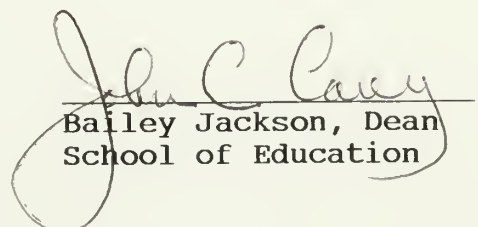 John C. Carey
Bailey Jackson, Dean
School of Education